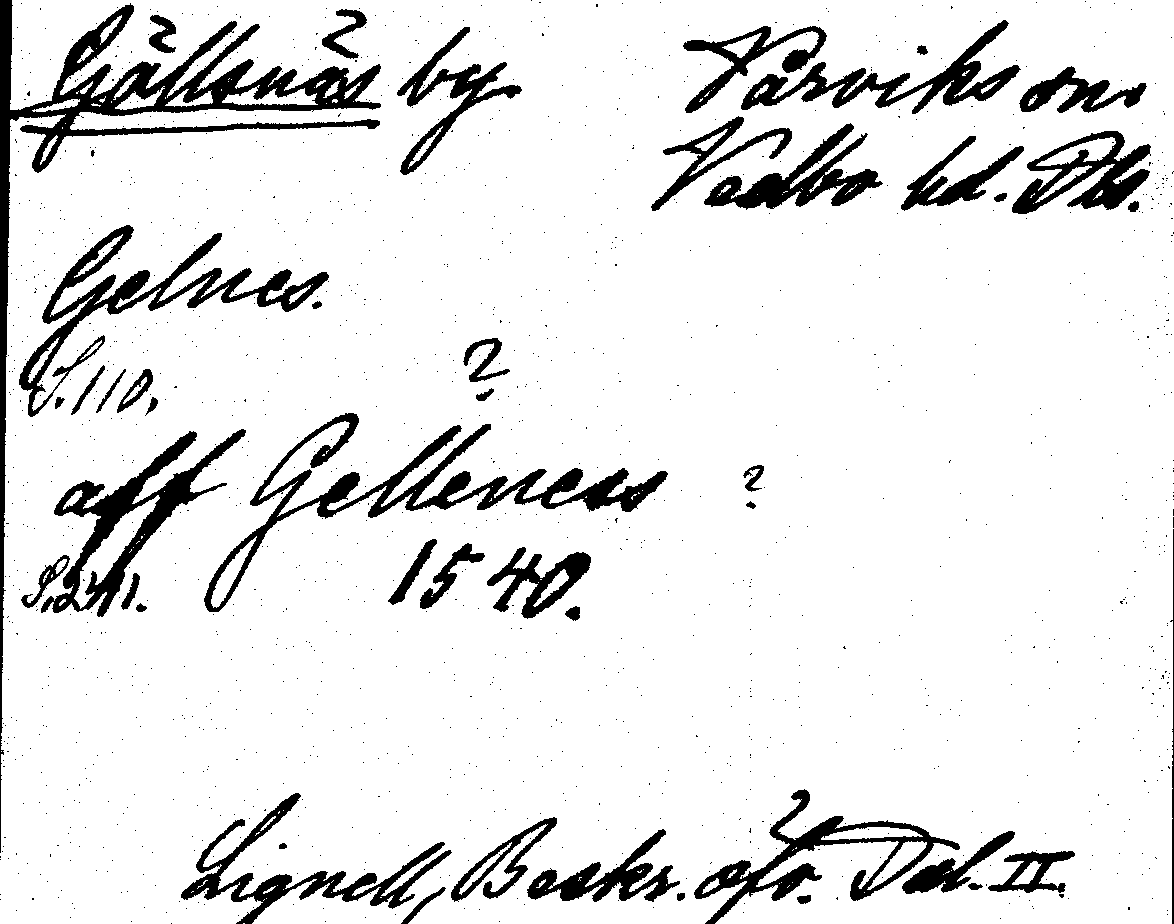 Gjällsnäs by.
Vårviks sn.
Vedbo hd. Dls.
Gelnes.
S. 110.
?
aff Gelleness ?
S. 241. 1540.
Lignell, Beskr. öfv. Dal. II.